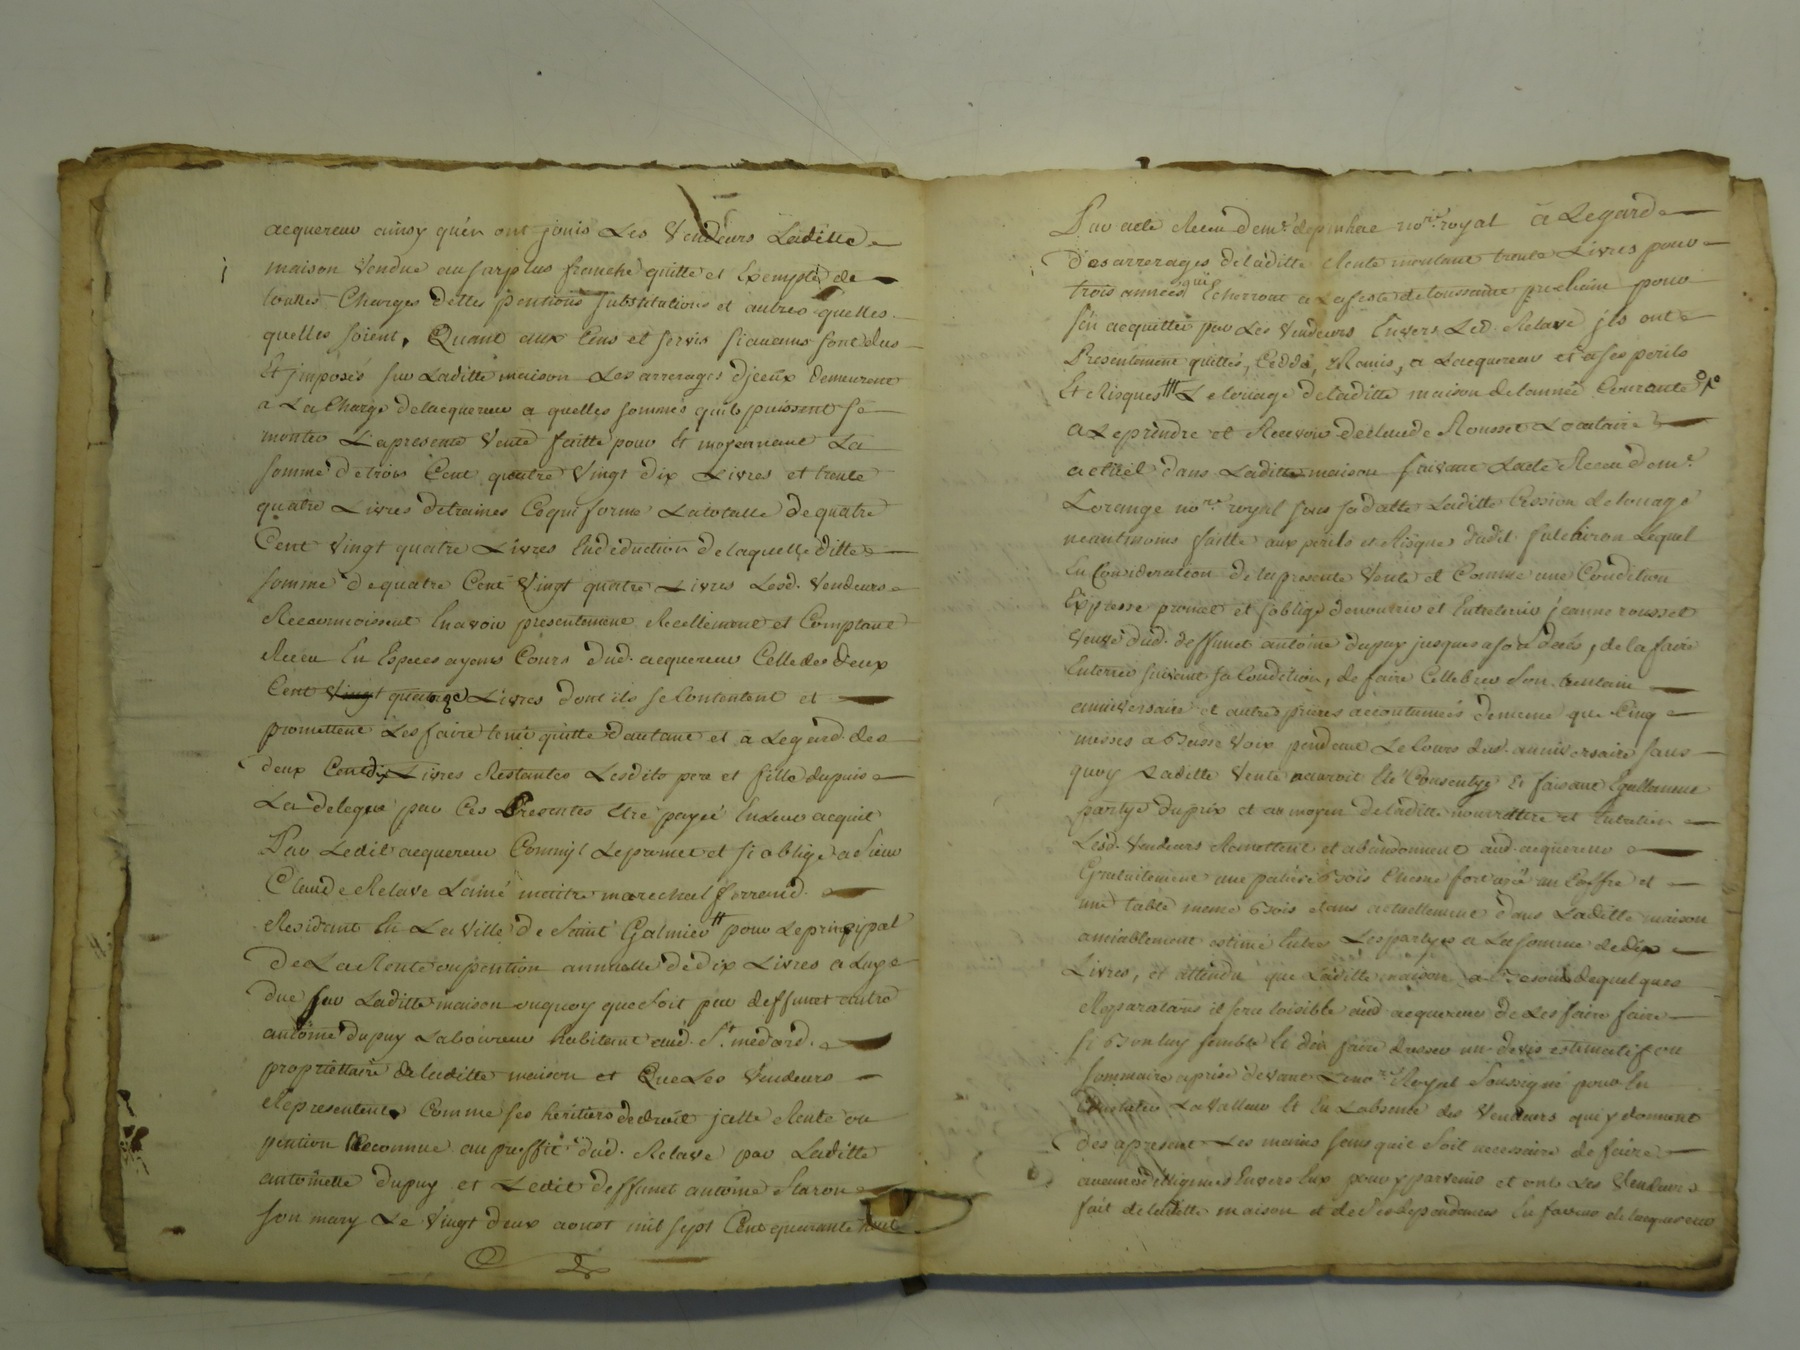 acquereur ainsy qu'en ont jouis Les Vendeurs Laditte
maison Vendue au surplus franche quitte et Exempte de
touttes Charges dettes pentions substitutions et autres quelles
quelles soient, Quant aux Cens et servis si aucuns sont dus
Et jmposés sur Laditte maison Les arrerages djceux demeurent
a La Charge de lacquereur a quelles sommes quils puissent se
monter La presente Vente faitte pour Et moyennant La
somme de trois Cent quatre Vingt dix Livres et trente
quatre Livres detraines Cequi forme La totalle de quatre
Cent Vingt quatre Livres En deduction de laquelle ditte
somme de quatre Cent Vingt quatre Livres Lesd. Vendeurs
Reconnoissent En avoir presentement Reellement et Comptant
Receu En Especes ayants Cours dud. acquereur Celle de deux
Cent Vingt quatorze Livres dont ils se Contentent et
promettent Les faire tenir quitte d'autant et a Legard des
deux Cent dix Livres Restantes Lesdits pere et fille dupuis
La delegue par Ces Presentes Etre payée En Leur acquit
Par Ledit acquereur Commil Le promet et si oblige a sieur
Claude Relave Lainé maitre marechal ferrand
Residant En La Ville de Saint Galmier pour Le principal
De La Rente ou pention annuelle de dix Livres a Luy
due sur Laditte maison ouquoy que soit par deffunct autre
antoine dupuy Laboureur habitant aud. St. medard
propriettaire de laditte maison et Que Les Vendeurs
Representent Comme ses heritiers de droit jcelle Rente ou
pention Reconnue au proffit dud. Relave par Laditte
antoinette dupuy et Ledit deffunt antoine Staron
son mary Le Vingt deux aoust mil sept Cent quarante huit
Par acte Receu de me. depinhac nore. royal a Legard
Des arrerages de laditte Rente montant trente Livres pour
trois années qui Echerront a La feste de toussaint prochaine pour
sen acquitter par Les Vendeurs Envers Led. Relave jls ont
Presentement quittés, Ceddé, Remis, a Lacquereur et a ses perils
Et Risques Le Louage de laditte maison de lannée Courante
a Le prendre et Recevoir de Claude Rousset Locataire
actuel dans Laditte maison suivant Lacte Receu de me.
Lorange nore. royal sous sa datte Laditte Cession de Louage
neantmoins faitte aux perils et Risques dudit falchiron Lequel
En Consideration de la presente Vente et Comme une Condition
Expresse promet et soblige de nourrir et Entretenir jeanne rousset
Veuve dud. deffunct antoine dupuy jusques a son deces, de la faire
Enterrer suivant sa Condition, de faire Cellebrer Son trentain
anniversaire et autres prieres accoutumées de meme que Cinq
messes a Basse Voix pendant Le Cours dud. anniversaire sans
quoy Laditte Vente n'auroit Eté Consentye Et faisant Egallement
partye du prix et au moyen de laditte nourriture et Entretien
Lesd. Vendeurs Remettent et abandonnent aud. acquereur
Gratuitement une patiere Bois Chesne fort usé un Coffre et
une table meme Bois etans actuellement dans Laditte maison
amiablement estimé Entre Les partyes a La somme de dix
Livres, et attendu que Laditte maison a Besoin de quelques
Reparations il sera loisible aud. acquereur de Les faire faire
si Bon luy semble Et den faire dresser un devis estimatif ou
sommaire aprise devant Le nore. Royal Soussigné pour En
Constater La Valleur Et En Labsence des Vendeurs qui y donnent
des apresent Les mains sans quil Soit necessaire de faire
aucunes dilligences Envers Eux pour y parvenir et ont Les Vendeurs
fait de laditte maison et de ses dependances En faveur de lacquereur